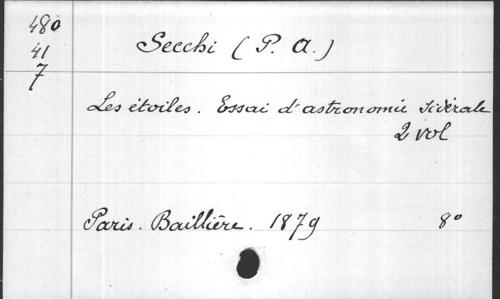 480
41
7
Secchi (P. A.)
Les étoiles. Essai d'astronomie sidérale
2 vol
Paris. Baillière. 1879 8°